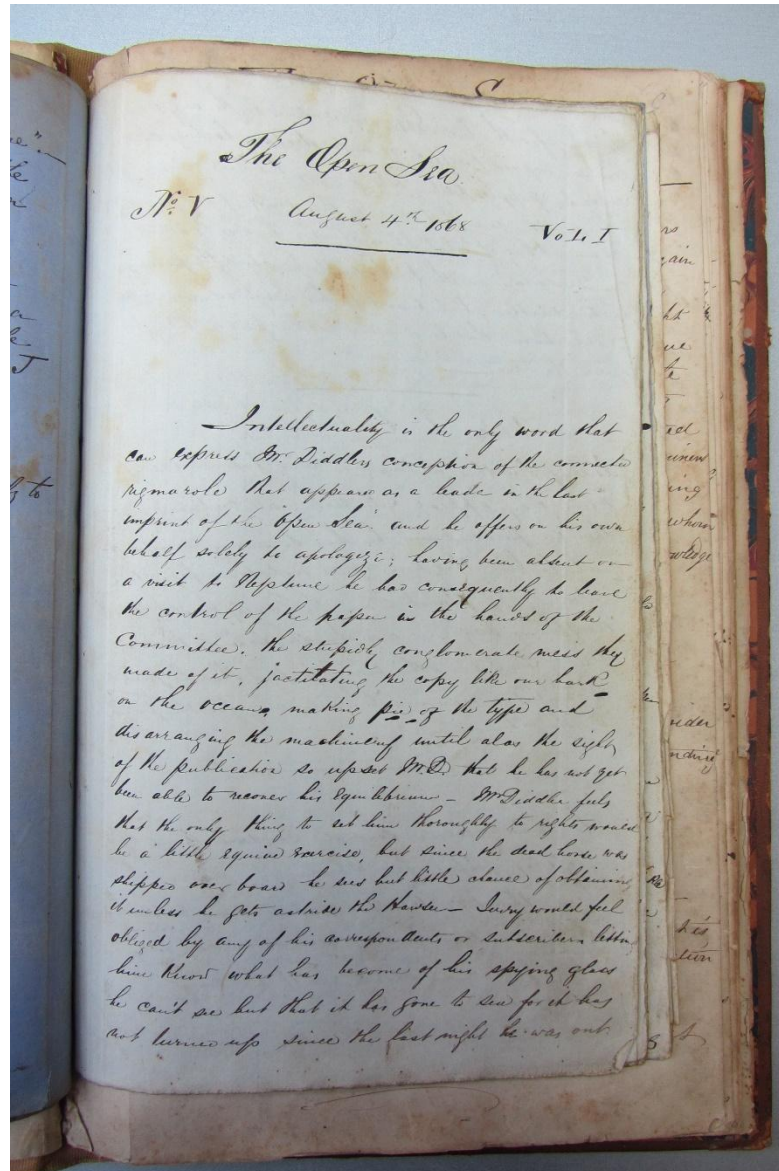 The Open Sea
No. V August 4th 1868 Vol. I
Intellectuality is the only word that
can express Mr. Diddlers conception of the
rigmarole that appears as a leade in the last
imprint of the "Open Sea" and he offers on his own
behalf solely to apologize; having been absent on
a visit to Neptune he had consequently to leave
the control of the paper in the hands of the
Committee. the stupidly conglomerate mess they
made of it, jactitating the copy like our bark
on the ocean, making pie of the type and
disarranging the machinery until alas the sight
of the publication so upset Mr. D. that he has not yet
been able to recover his Equilibrium – Mr Diddler feels
that the only thing to set him thoroughly to rights would
be a little equine exercise, but since the dead horse was
shipped over board he sees but little chance of obtaining
it unless he gets astride the Hawser – would feel
obliged by any of his correspondents or subscribers letting
him Know what has become of his spying glass
he can't see but that it has gone to sea for it has
not turned up since the last night he was out